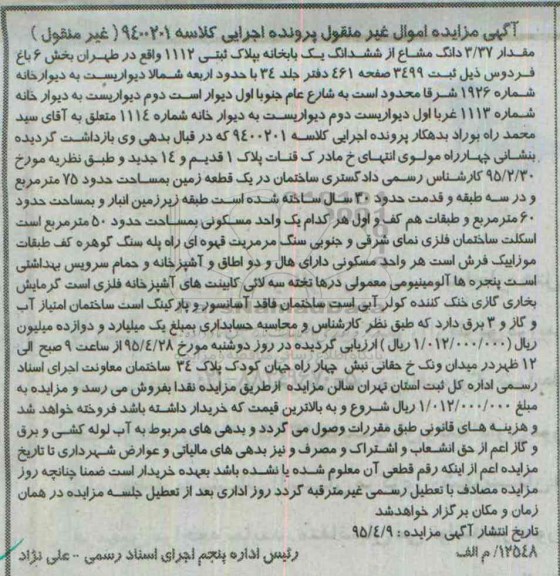 آگهی مزایده اموال غیر منقول پرونده اجرایی کلاسه ۹۴۰۰۲۰۱ ( غیر منقول )
مقدار ۳/۳۷ دانگ مشاع از ششدانگ یک بابخانه بپلاک ثبتی ۱۱۱۲ واقع در طهران بخش ۶ باغ
فردوس ذیل ثبت ۳۴۹۹ صفحه ۴۶۱ دفتر جلد ۳۴ با حدود اربعه شمالا دیواریست به دیوارخانه
شماره ۱۹۲۶ شرقا محدود است به شارع عام جنوبا اول دیوار است دوم دیواریست به دیوار خانه
شماره ۱۱۱۳ غربا اول دیواریست دوم دیواریست به دیوار خانه شماره ۱۱۱۴ متعلق به آقای سید
محمد راه بوراد بدهکار پرونده اجرایی کلاسه ۹۴۰۰۲۰۱ که در قبال بدهی وی بازداشت گردیده
بنشانی چهارراه مولوی انتهای خ مادر ک قنات پلاک ۱ قدیم و ۱۴ جدید و طبق نظریه مورخ
۹۵/۲/۳۰ کارشناس رسمی دادگستری ساختمان در یک قطعه زمین بمساحت حدود ۷۵ مترمربع
و در سه طبقه و قدمت حدود ۳۰ سال ساخته شده است طبقه زیرزمین انبار و بمساحت حدود
۶۰ مترمربع و طبقات هم کف و اول هر کدام یک واحد مسکونی بمساحت حدود ۵۰ مترمربع است
اسکلت ساختمان فلزی نمای شرقی و جنوبی سنگ مرمریت قهوه ای راه پله سنگ گوهره کف طبقات
موزاییک فرش است هر واحد مسکونی دارای هال و دو اطاق و آشپزخانه و حمام سرویس بهداشتی
است پنجره ها آلومینیومی معمولی درها تخته سه لائی کابینت های آشپزخانه فلزی است گرمایش
بخاری گازی خنک کننده کولر آبی است ساختمان فاقد آسانسور و پارکینگ است ساختمان امتیاز آب
و گاز و ۳ برق دارد که طبق نظر کارشناس و محاسبه حسابداری بمبلغ یک میلیارد و دوازده میلیون
ریال (۱/۰۱۲/۰۰۰/۰۰۰ ریال ) ارزیابی گردیده در روز دوشنبه مورخ ۹۵/۴/۲۸ از ساعت ۹ صبح الی
۱۲ ظهردر میدان ونک خ حقانی نبش چهار راه جهان کودک پلاک ۳۴ ساختمان معاونت اجرای اسناد
رسمی اداره کل ثبت استان تهران سالن مزایده ازطریق مزایده نقدا بفروش می رسد و مزایده به
مبلغ ۱/۰۱۲/۰۰۰/۰۰۰ ریال شروع و به بالاترین قیمت که خریدار داشته باشد فروخته خواهد شد
و هزینه های قانونی طبق مقررات وصول می گردد و بدهی های مربوط به آب لوله کشی و برق
و گاز اعم از حق انشعاب و اشتراک و مصرف و نیز بدهی های مالیاتی و عوارض شهرداری تا تاریخ
مزایده اعم از اینکه رقم قطعی آن معلوم شده یا نشده باشد بعهده خریدار است ضمنا چنانچه روز
مزایده مصادف با تعطیل رسمی غیرمترقبه گردد روز اداری بعد از تعطیل جلسه مزایده در همان
زمان و مکان برگزار خواهدشد
تاریخ انتشار آگهی مزایده : ۹۵/۴/۹
۱۲۵۴۸/ م الف رئیس اداره پنجم اجرای اسناد رسمی -- علی نژاد